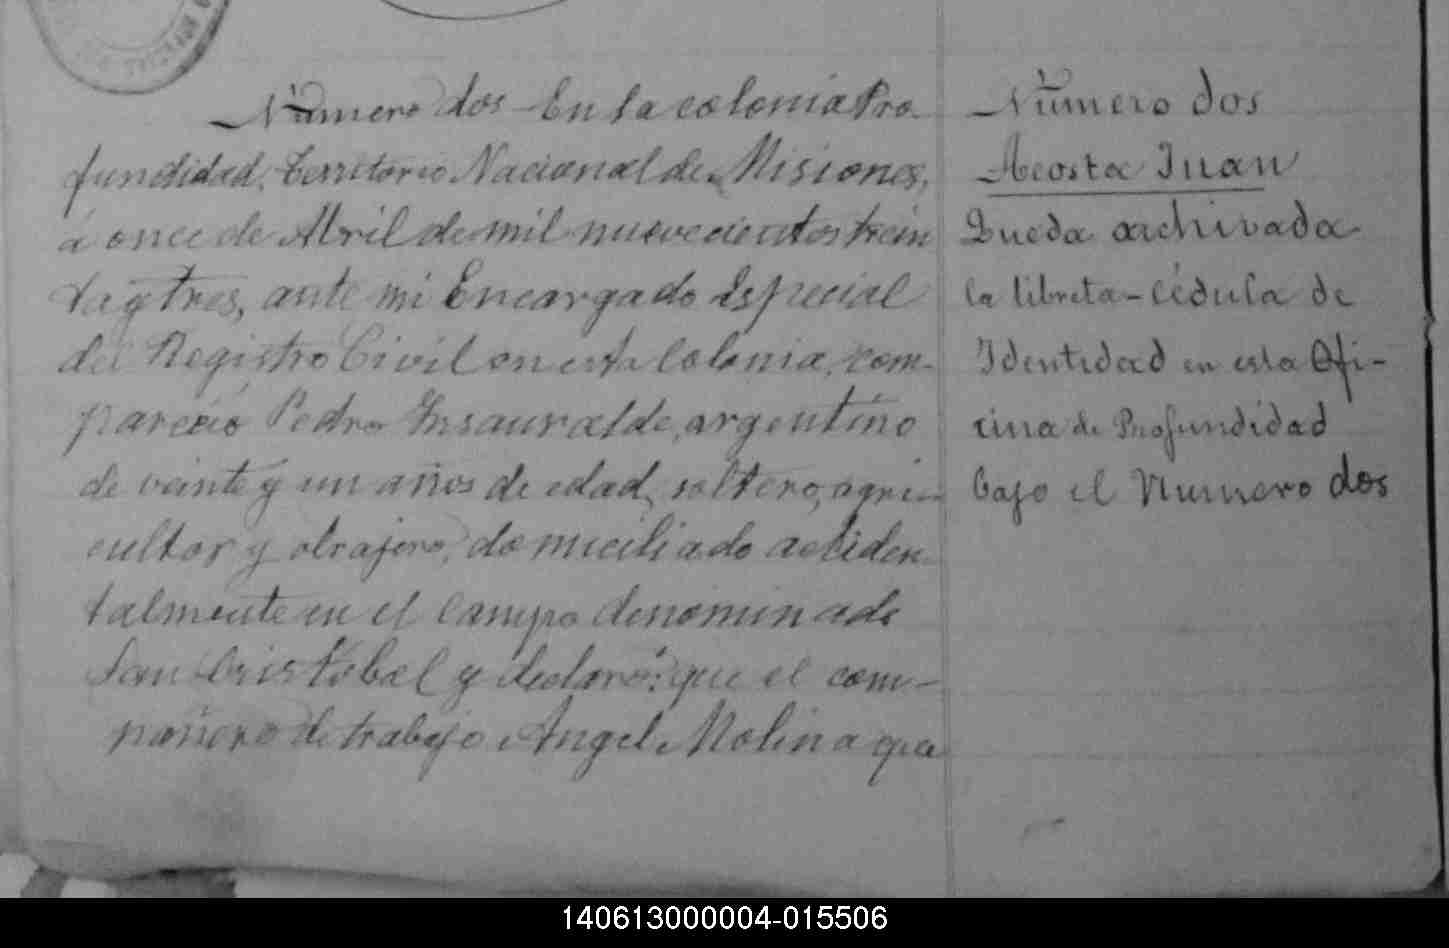 Número dos En la colonia Pro
fundidad, territorio Nacional de Misiones,
á once de Abril de mil nuevecientos trein
ta y tres, ante mi Encargado Especial
del Registro Civil en esta Colonia, com-
pareció Pedro Insauralde, argentino
de veinte y un años de edad, soltero, agri-
cultor y obrajero, domiciliado acciden-
talmente en el Campo denominado
San Cristóbal y declaró: que el com-
pañero de trabajo Angel Molina que
Número dos
Acosta Juan
Queda archivada
la libreta-cédula de
Identidad en esta Ofi-
cina de Profundidad
bajo el Numero dos
140613000004-015506